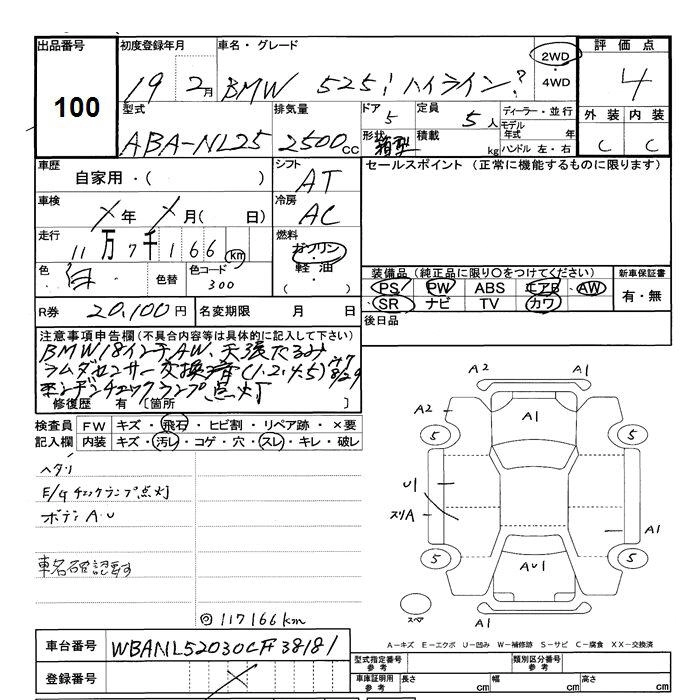 出品番号 初度登録年月 車名・グレード 評価点
100 19 2月 BMW 525i ハイライン? 2WD・4WD 4
型式 排気量 ドア 定員 ディーラー・並行 外装 内装
ABA-NL25 2500cc 5 5人 モデル年式 年 C C
形状 箱型 積載 kg ハンドル 左・右
車歴 シフト セールスポイント (正常に機能するものに限ります)
自家用・( ) AT
車検 冷房
X年 X月( 日) AC
走行 燃料
11万7千166km ガソリン・軽油・( )
色 色替 色コード 装備品(純正品に限り○をつけてください) 新車保証書
白 300 PS PW ABS エアB AW 有・無
R券 20,100円 名変期限 月 日 SR ナビ TV カワ
後日品
注意事項申告欄(不具合内容等は具体的に記入して下さい)
BMW18インチAW、天張たるみ
ラムダセンサー交換済(1.2.4.5)
エンジンチェックランプ点灯
修復歴 有〔箇所 〕
検査員 FW キズ・飛石・ヒビ割・リペア跡・×要
記入欄 内装 キズ・汚レ・コゲ・穴・スレ・キレ・破レ
ヘタリ
E/gチェックランプ点灯
ボディA.U
車名確認要す
◎117166km
A2 A1
A2 A1
5 5
U1
スリA A1
5 5
AU1
スペア A1
A-キズ E-エクボ U-凹み W-補修跡 S-サビ C-腐食 XX-交換済
車台番号 WBANL52030CF38181
登録番号 X
型式指定番号 参考 類別区分番号 参考
車庫証明用 参考 長さ cm 幅 cm 高さ cm